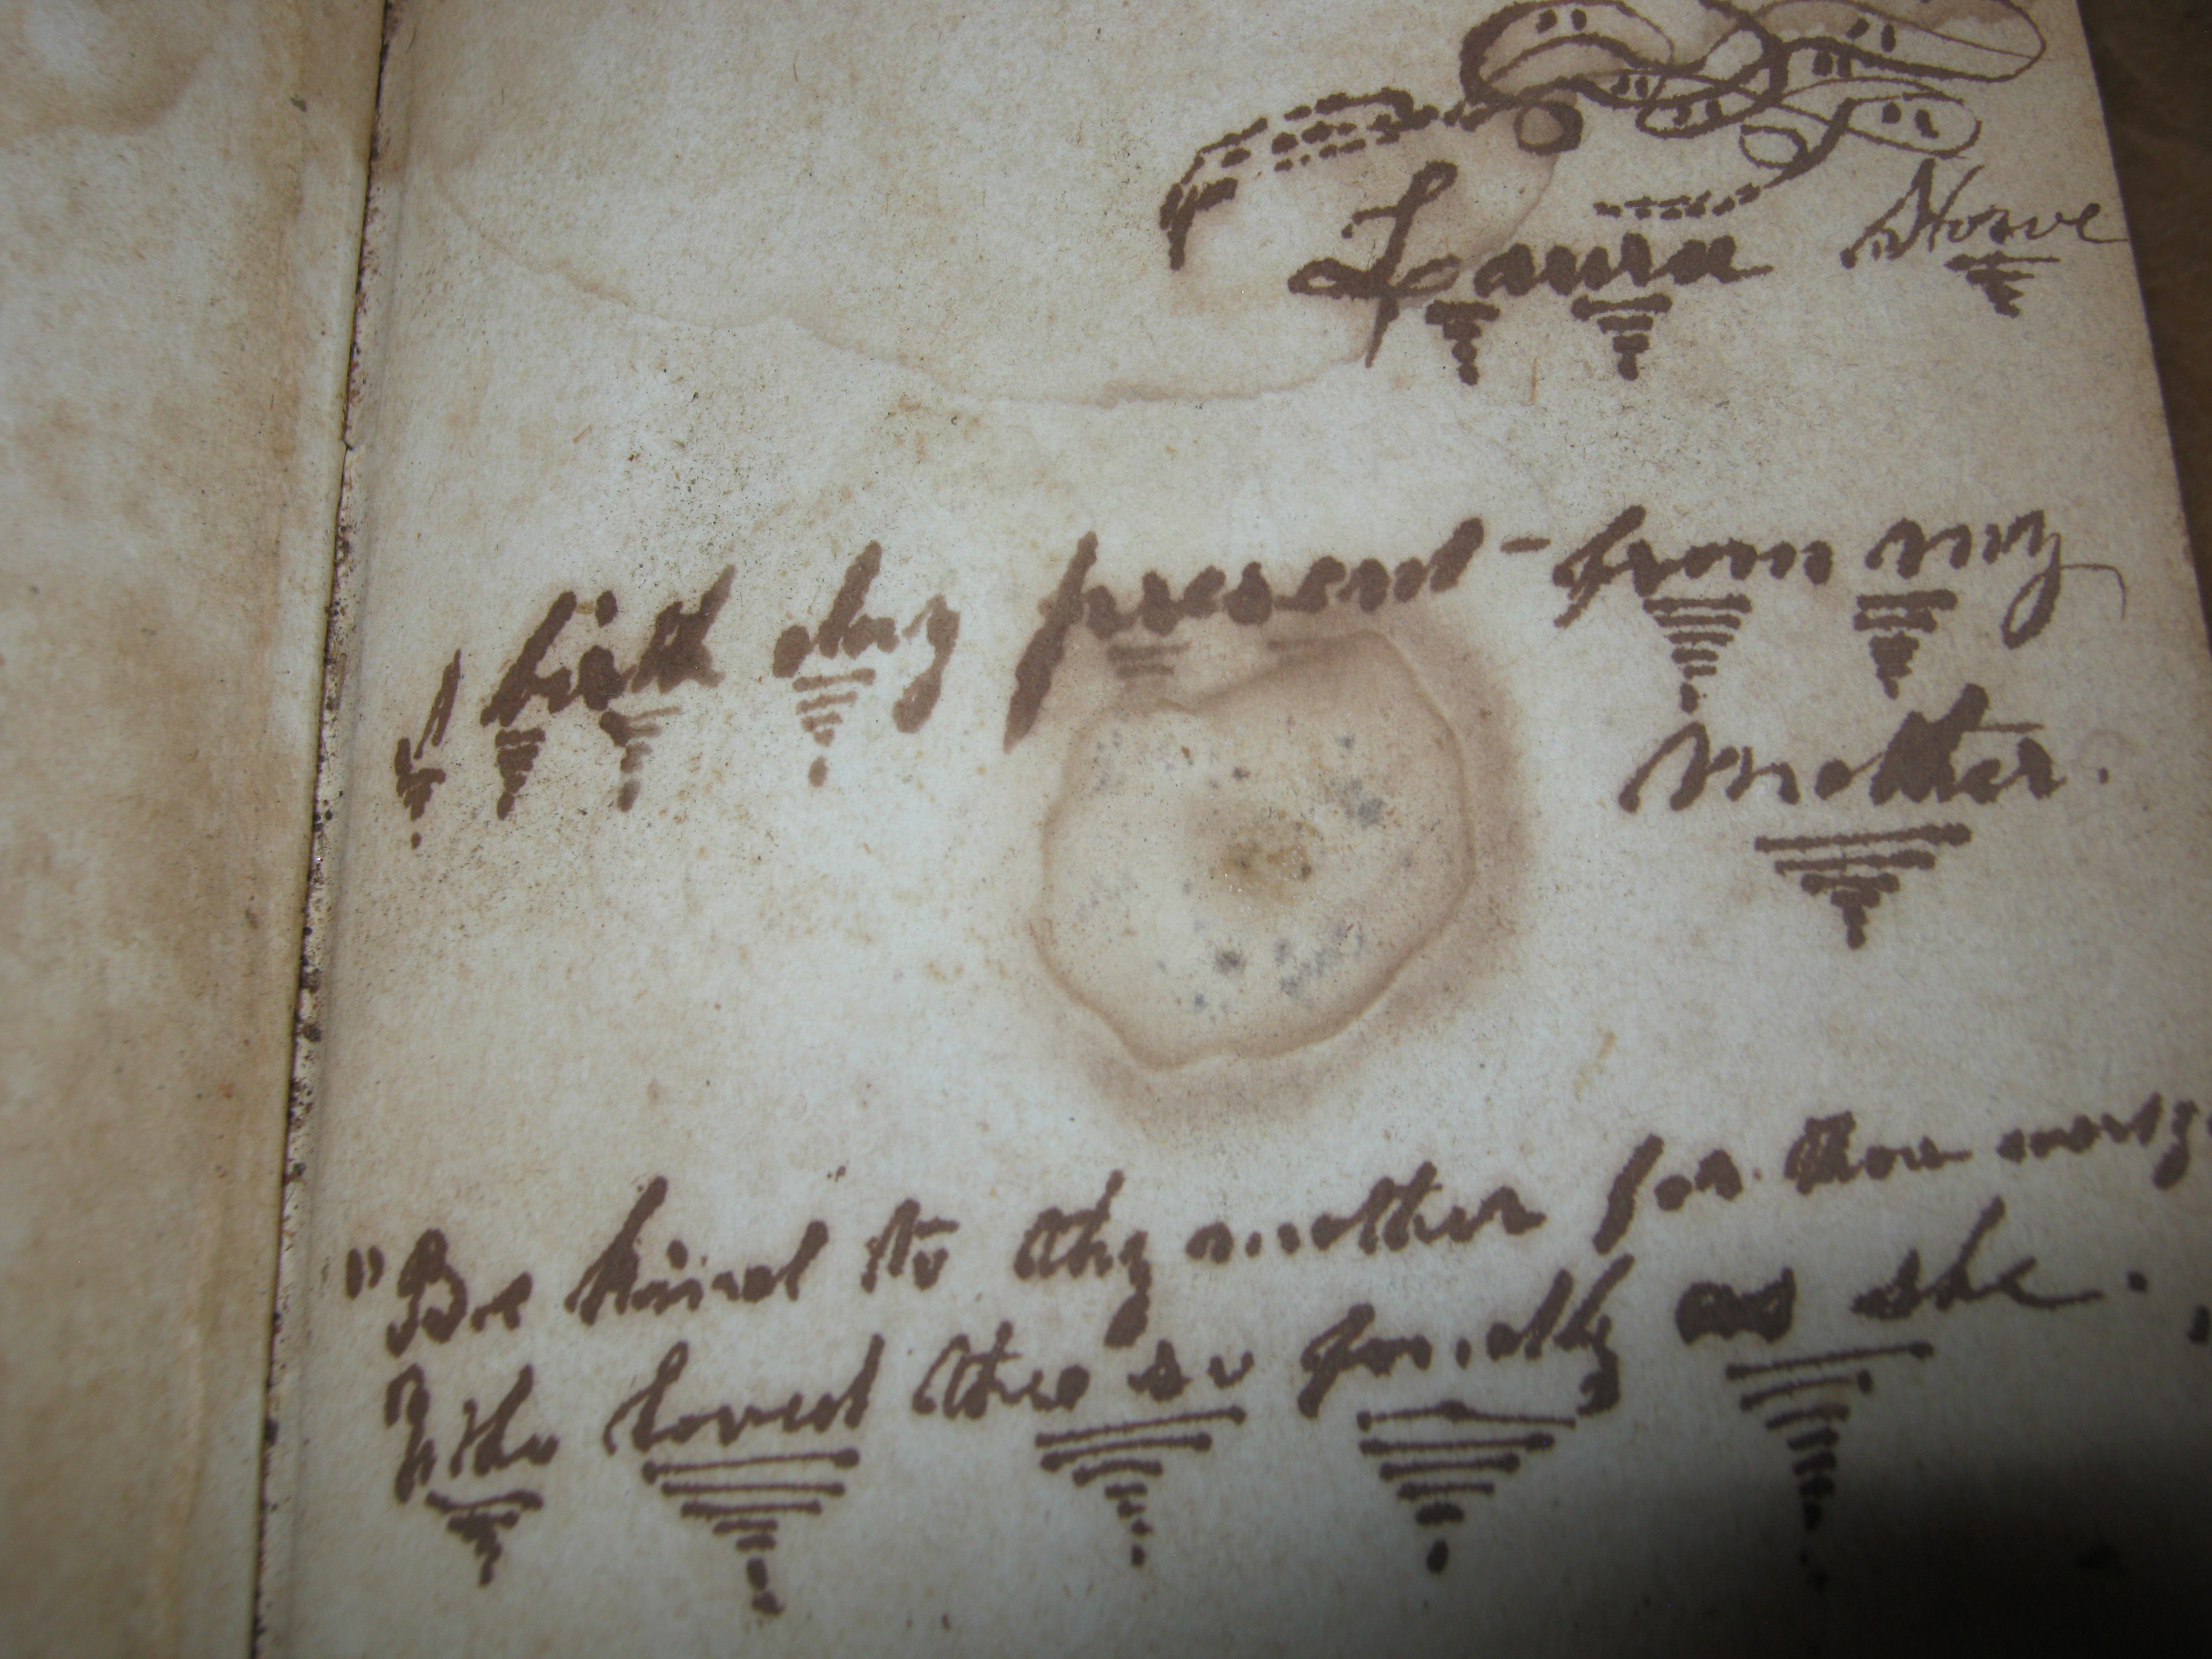 Laura Stowe
A birth day present - from my
Mother.
"Be kind to thy mother for thou
Who loved thee so fondly as she.